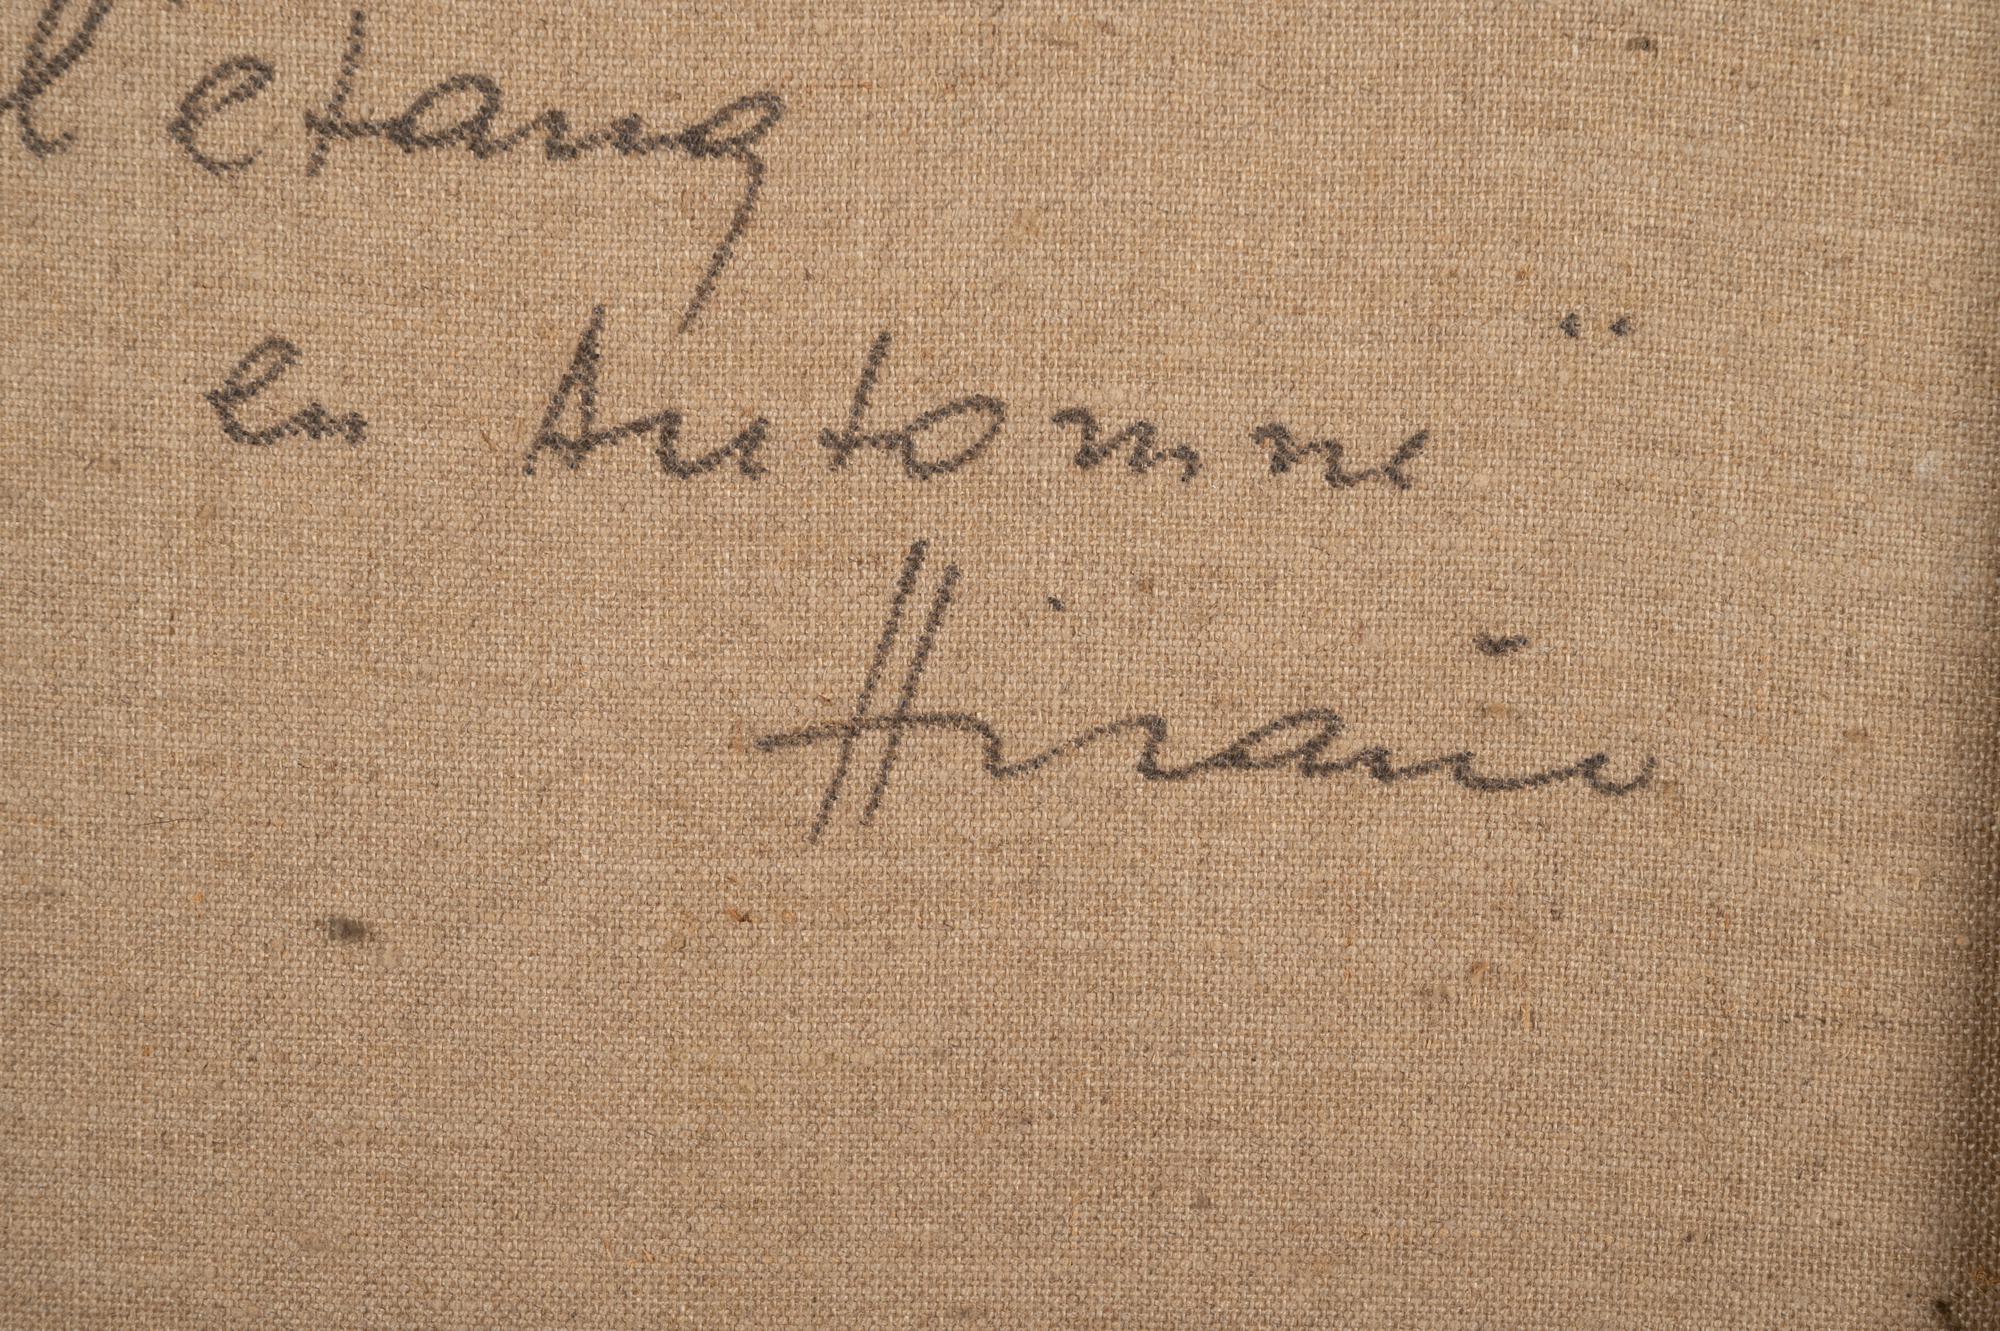 l'etang
en Automne"
Hirano